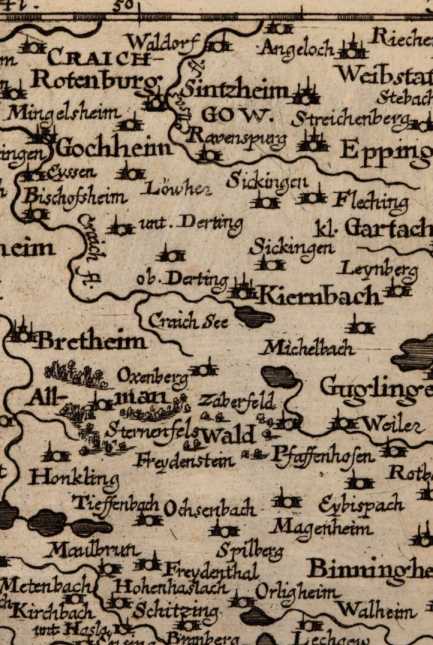 50
Waldorf
Angeloch
CRAICH-
Rotenburg
Sintzheim
Mingelsheim
GOW.
Streichenberg
Gochheim
Ravenspurg
Epping
Eyssen
Löwhen
Sickingen
Bischofsheim
Fleching
unt. Derting
kl. Gartach
heim
Craich fl.
Sickingen
Leynberg
ob. Derting
Kiernbach
Craich See
Bretheim
Michelbach
Oxenberg
Guglinge
All-
man
Zaberfeld
Sternenfels
Wald
Weiler
Freydenstein
Pfaffenhofen
Honkling
Tieffenbach
Ochsenbach
Eybispach
Magenheim
Maulbrun
Spilberg
Freydenthal
Binninghe
Metenbach
Hohenhaslach
Orligheim
Kirchbach
Schitzing
Walheim
unt Hasla
Bromberg
Lechgew